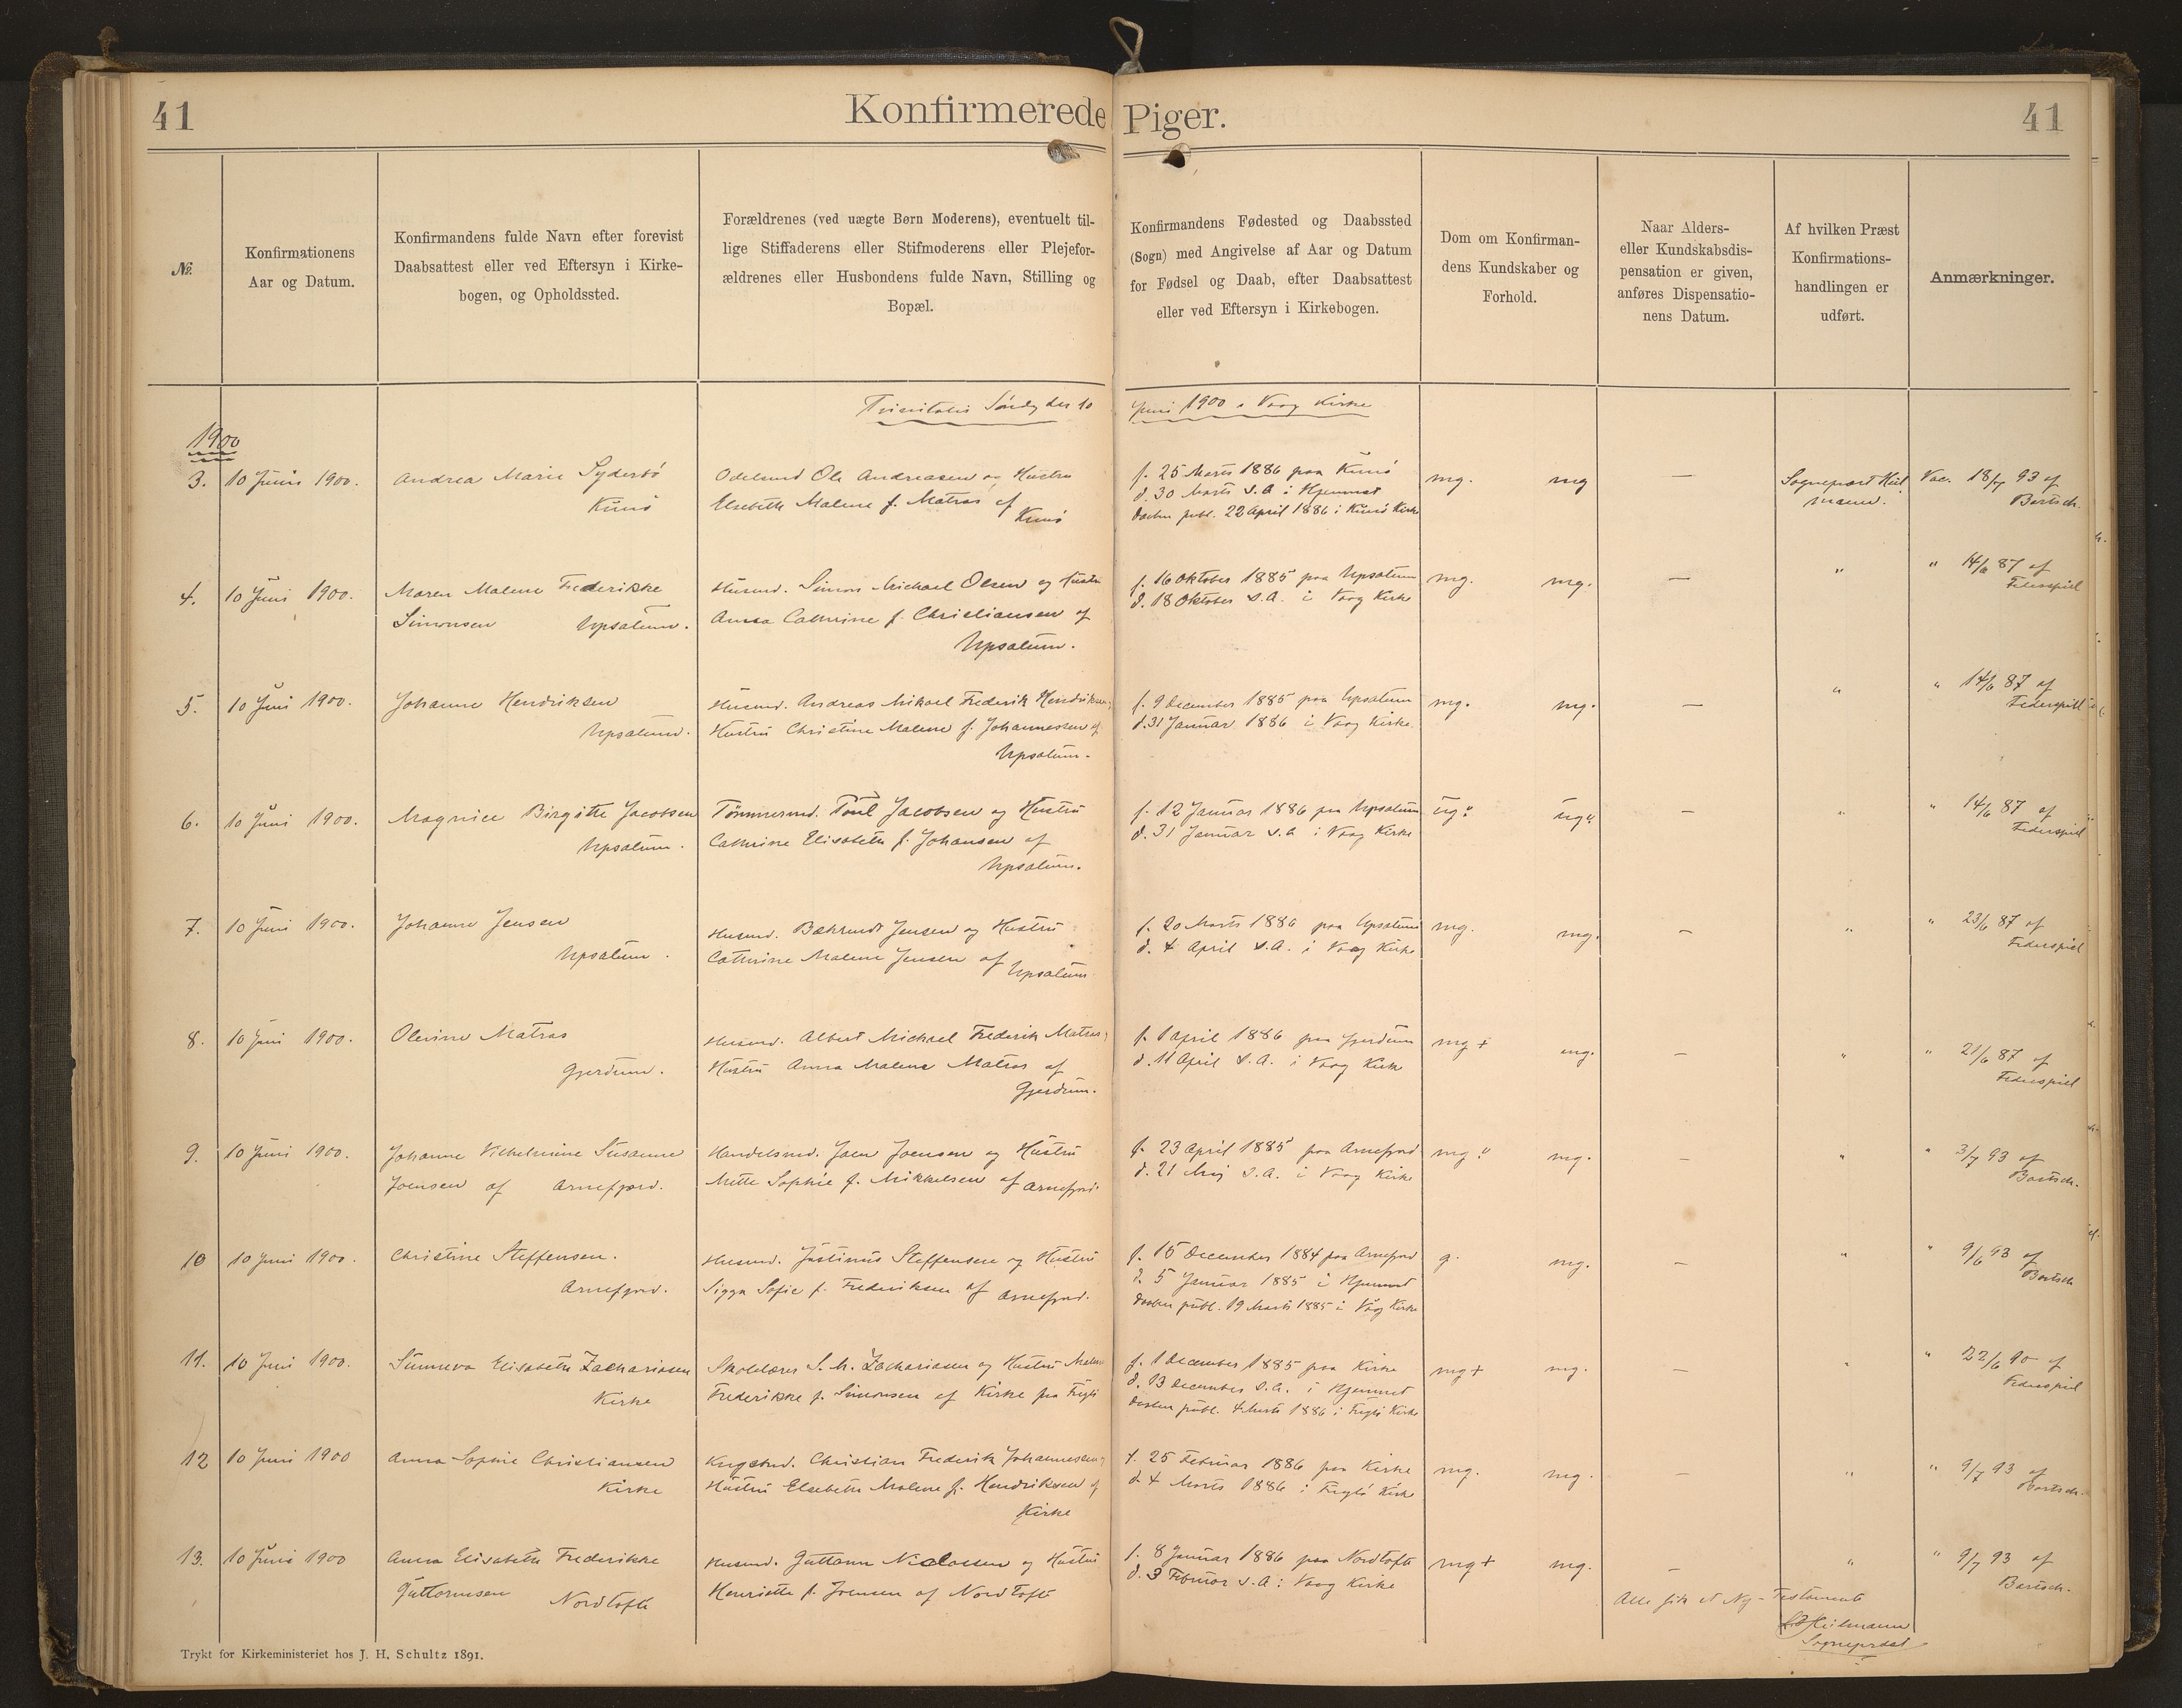 41
Konfirmerede Piger.
41
№
Konfirmationens
Aar og Datum.
Konfirmandens fulde Navn efter forevist
Daabsattest eller ved Eftersyn i Kirke-
bogen, og Opholdssted.
Forældrenes (ved uægte Børn Moderens), eventuelt til-
lige Stiffaderens eller Stifmoderens eller Plejefor-
ældrenes eller Husbondens fulde Navn, Stilling og
Bopæl.
Konfirmandens Fødested og Daabssted
(Sogn) med Angivelse af Aar og Datum
for Fødsel og Daab, efter Daabsattest
eller ved Eftersyn i Kirkebogen.
Dom om Konfirman-
dens Kundskaber og
Forhold.
Naar Alders-
eller Kundskabsdis-
pensation er given,
anføres Dispensatio-
nens Datum.
Af hvilken Præst
Konfirmations-
handlingen er
udført.
Anmærkninger.
Trinitatis Søndag den 10 Juni 1900 i Vaag Kirke
1900
3.
10 Juni 1900.
Andrea Marie Syderbö
Kunö
Odelsmd Ole Andreasen og Hustru
Elsebeth Malene f. Matras af
Kunö
f. 25 Marts 1886 paa Kunö
d. 30 Marts s.A. i Hjemmet
Daaben publ. 22 April 1886 i Kunö Kirke
mg. mg
—
Sognepræst Heil
mann.
Vac. 18/7 93 af
Bartsch.
4.
10 Juni 1900.
Maren Malene Frederikke
Simonsen Upsalum.
Husmd. Simon Michael Olsen og Hustru
Anna Cathrine f. Christiansen af
Upsalum.
f. 16 Oktober 1885 paa Upsalum
d. 18 Oktober s.A. i Vaag Kirke
mg. mg.
—
"
" 14/6 87 af
Federspiel
5.
10 Juni 1900.
Johanne Hendriksen
Upsalum.
Husmd. Andreas Mikael Frederik Hendriksen
Hustru Christine Malene f. Johannessen af
Upsalum.
f. 9 December 1885 paa Upsalum
d. 31 Januar 1886 i Vaag Kirke.
mg. mg.
—
"
" 14/6 87 af
Federspiel
6.
10 Juni 1900.
Magnice Birgitte Jacobsen
Upsalum.
Tömmermd. Poul Jacobsen og Hustru
Cathrine Elisabeth f. Johansen af
Upsalum.
f. 12 Januar 1886 paa Upsalum
d. 31 Januar s.A i Vaag Kirke
ug. ug.
—
"
" 14/6 87 af
Federspiel
7.
10 Juni 1900.
Johanne Jensen
Upsalum.
Husmd. Jensen og Hustru
Cathrine Malene Jensen af Upsalum
f. 20 Marts 1886 paa Upsalum
d. 4 April s.A. i Vaag Kirke
mg. mg.
—
"
" 23/6 87 af
Federspiel
8.
10 Juni 1900.
Olevine Matras
Gjerdum.
Husmd. Albert Michael Frederik Matras
Hustru Anna Malene Matras af
Gjerdum.
f. 1 April 1886 paa Gjerdum
d. 11 April s.A. i Vaag Kirke
mg + mg.
—
"
" 21/6 87 af
Federspiel
9.
10 Juni 1900.
Johanne Vilhelmine Susanne
Joensen af Arnefjord.
Handelsmd. Joen Joensen og Hustru
Mette Sophie f. Mikkelsen af Arnefjord.
f. 23 April 1885 paa Arnefjord
d. 21 Maj s.A. i Vaag Kirke
mg. mg.
—
"
" 3/7 93 af
Bartsch.
10
10 Juni 1900.
Christine Steffensen.
Arnefjord.
Husmd. Justinus Steffensen og Hustru
Sigga Sofie f. Frederiksen af Arnefjord.
f. 15 December 1884 paa Arnefjord
d. 5 Januar 1885 i Hjemmet
Daaben publ. 19 Marts 1885 i Vaag Kirke
g. mg.
—
"
" 9/6 93 af
Bartsch
11.
10 Juni 1900.
Sunneva Elisabeth Zachariasen
Kirke
Skolelærer S. M. Zachariasen og Hustru Malene
Frederikke f. Simonsen af Kirke paa Fuglö
f. 1 December 1885 paa Kirke
d. 13 December s.A. i Hjemmet
Daaben publ. 4 Marts 1886 i Fuglö Kirke
mg+ mg.
—
"
" 22/6 90 af
Federspiel
12
10 Juni 1900
Anna Sophie Christiansen
Kirke
Christian Frederik Johannessen
Hustru Elsebeth Malene f. Hendriksen af
Kirke
f. 25 Februar 1886 paa Kirke
d. 4 Marts 1886 i Fuglö Kirke
mg. mg.
—
"
" 9/7 93 af
Bartsch.
13.
10 Juni 1900
Anna Elisabeth Frederikke
Guttormsen Nordtofte
Husmd. Guttorm Niclassen og Hustru
Henriette f. Joensen af Nordtofte
f. 8 Januar 1886 paa Nordtofte
d. 3 Februar s.A i Vaag Kirke
mg+ mg.
—
"
" 9/7 93 af
Bartsch.
Alle fik et Ny-Testamente
Heilmann
Sognepræst
Trykt for Kirkeministeriet hos J. H. Schultz 1891.